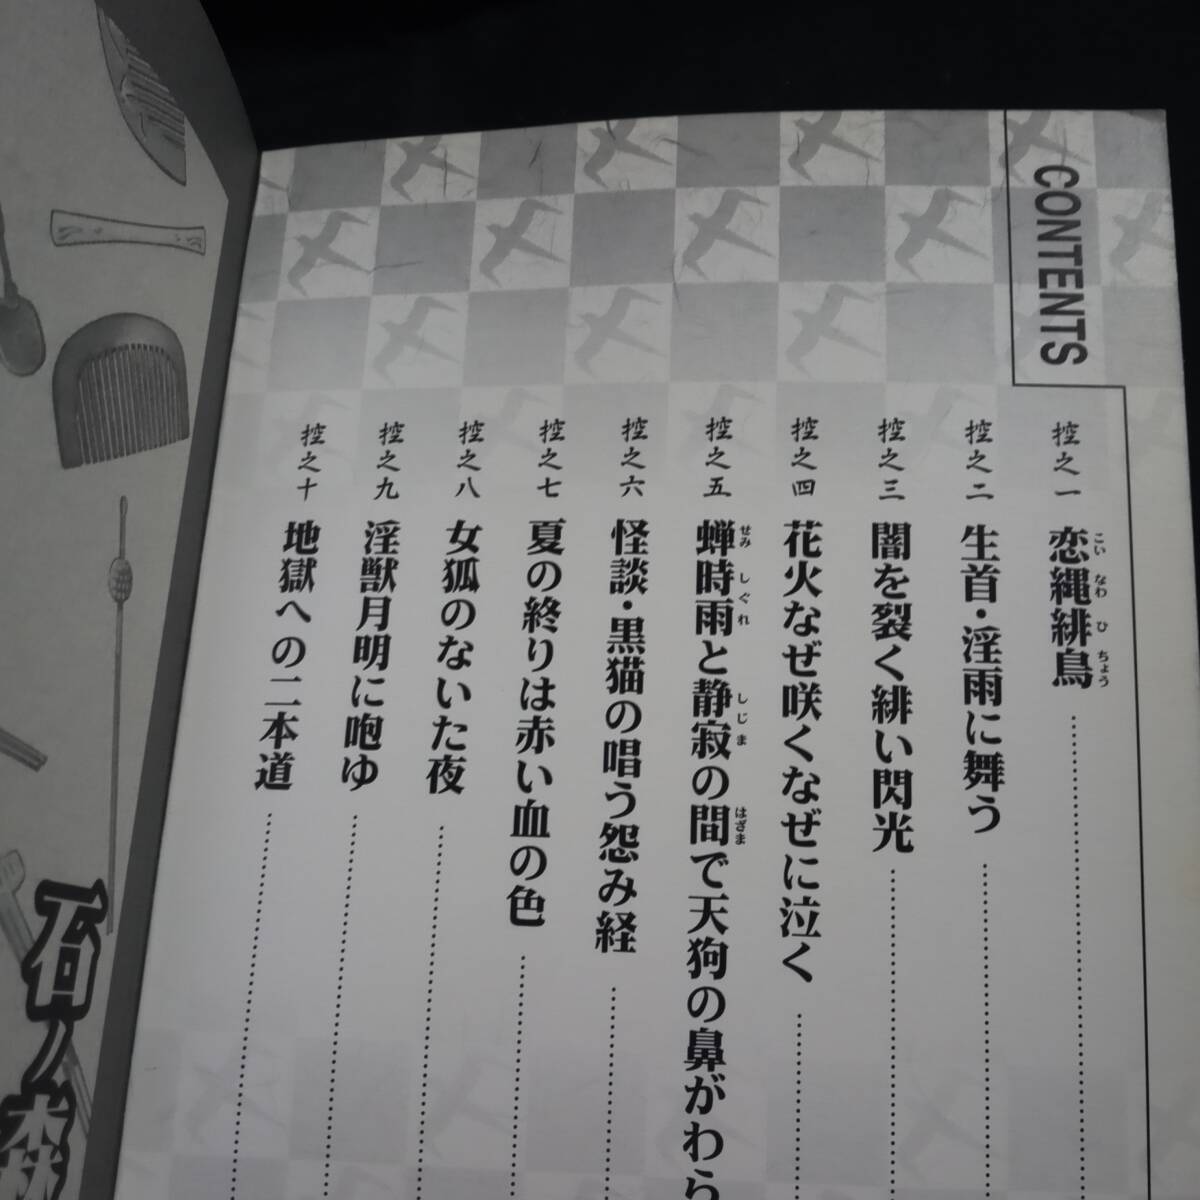 CONTENTS
控之一 恋縄緋鳥
こい なわ ひ ちょう
控之二 生首・淫雨に舞う
控之三 闇を裂く緋い閃光
控之四 花火なぜ咲くなぜに泣く
控之五 蝉時雨と静寂の間で天狗の鼻がわら
せみ しぐれ しじま はざま
控之六 怪談・黒猫の唱う怨み経
控之七 夏の終りは赤い血の色
控之八 女狐のないた夜
控之九 淫獣月明に咆ゆ
控之十 地獄への二本道
石ノ森